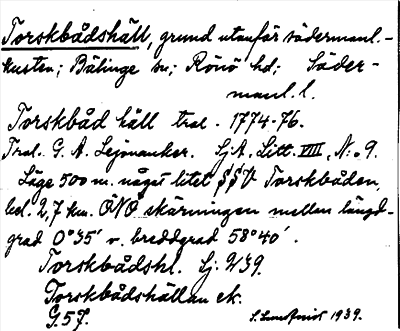 Torskbådshäll, grund utanför södermanl.-
kusten; Bälinge sn; Rönö hd; Söder-
manl. l.
Torskbåd häll tral. 1774-76.
Tral. G. A. Lejonanker. SjA. Litt. VIII, N:o 9.
Läge 500 m. något litet SSV Torskbåden,
bel. 2,7 km. ÖNÖ skärningen mellan längd-
grad 0°35' v. breddgrad 58°40'.
Torskbådshl. Sj: 239.
Torskbådshällan ek.
G.57. 1939.